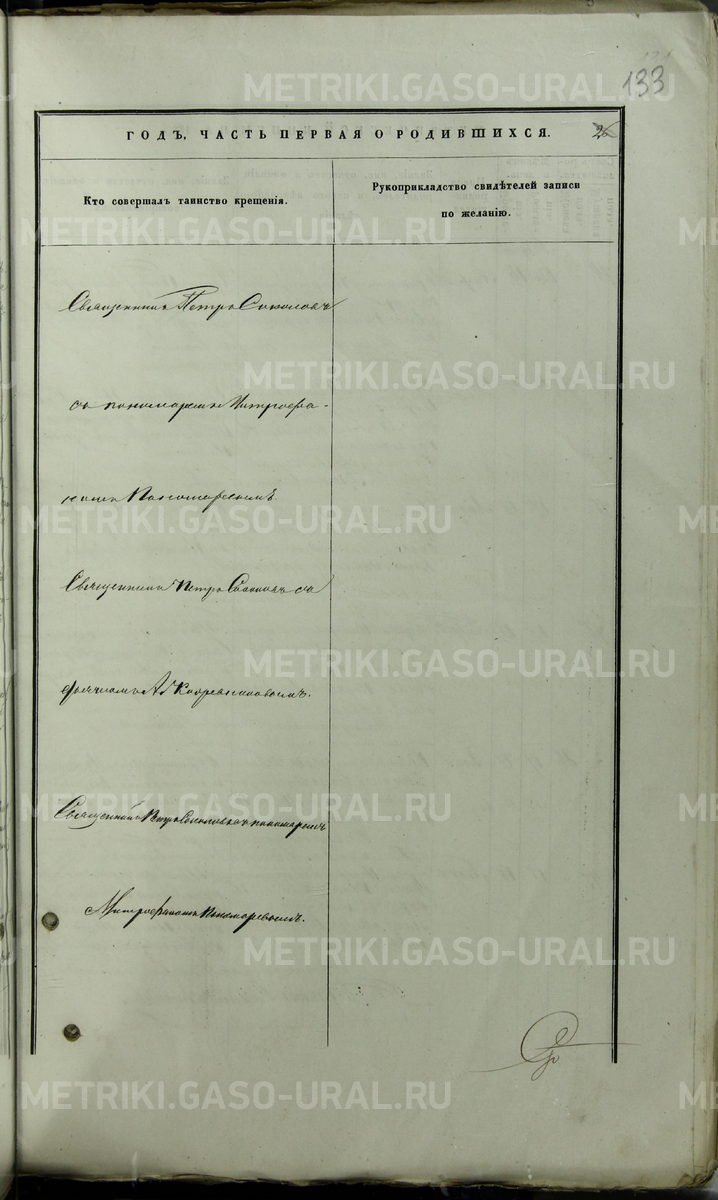 133
ГОДЪ, ЧАСТЬ ПЕРВАЯ О РОДИВШИХСЯ.
26
Кто совершалъ таинство крещенія.
Рукоприкладство свидѣтелей записи
по желанію.
Священникъ Петръ Соколовъ
съ пономаремъ Митрофа-
номъ Пономаревымъ.
Священникъ Петръ Соколовъ съ
дьячкомъ
Священникъ Петръ Соколовъ съ пономаремъ
Митрофаномъ Пономаревымъ.
METRIKI.GASO-URAL.RU